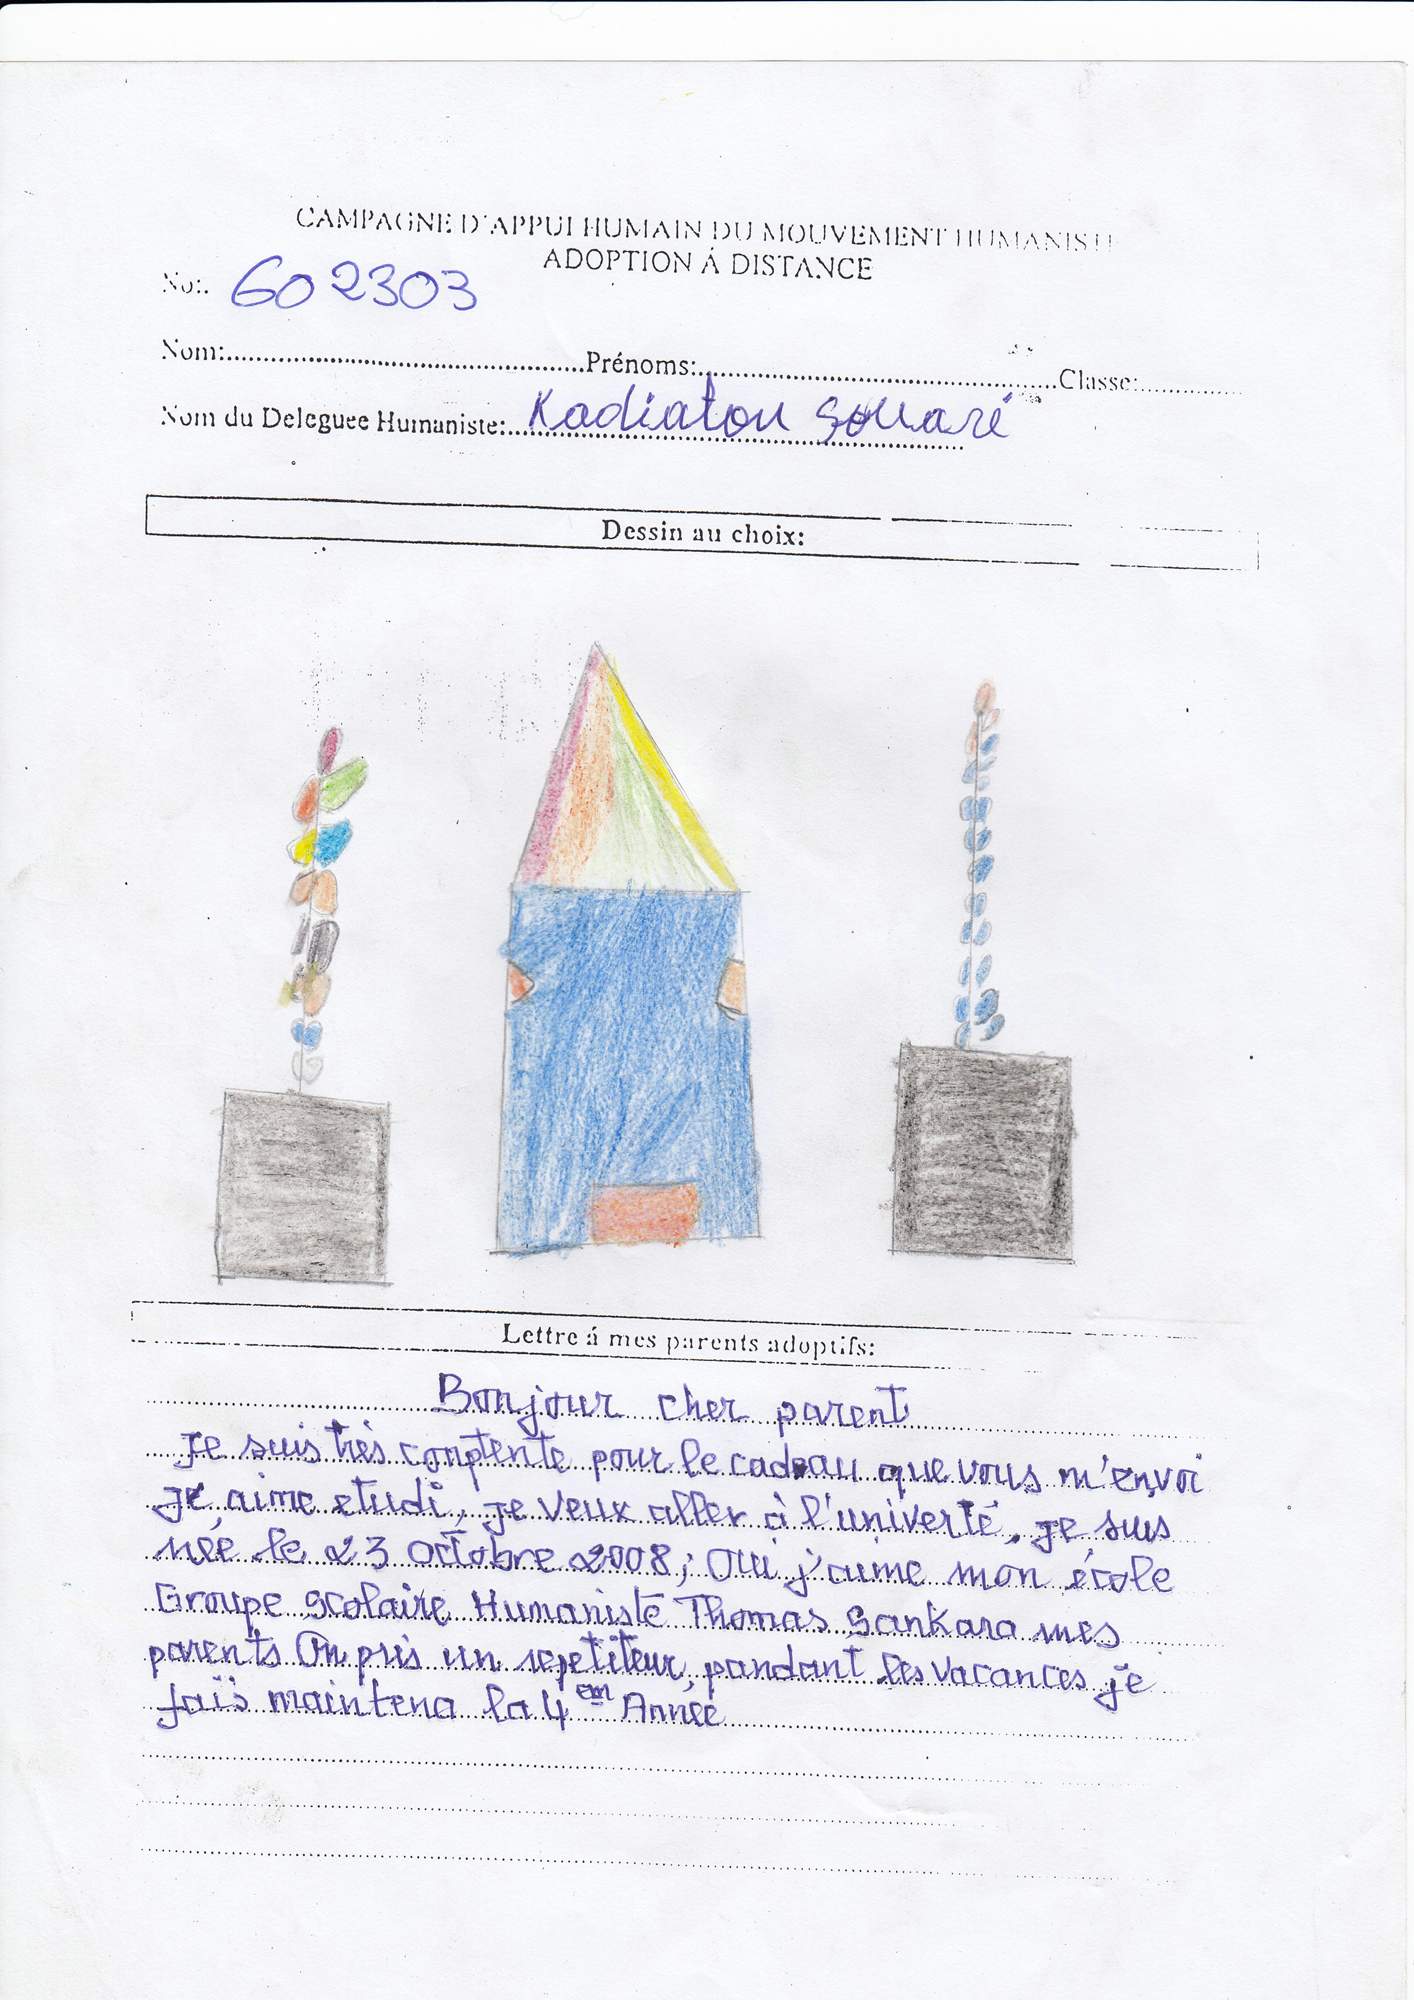 CAMPAGNE D'APPUI HUMAIN DU MOUVEMENT HUMANISTE
ADOPTION Á DISTANCE
No:. 602303
Nom:..........Prénoms:..........Classe:..........
Nom du Deleguee Humaniste:.......... Kadiatou Souaré
Dessin au choix:
Lettre á mes parents adoptifs:
Bonjour cher parent
Je suis très comptente pour le cadeau que vous m'envoi
Je aime etudi, je veux aller à l'univerté. Je suis
née le 23 Octobre 2008; Oui j'aime mon école
Groupe Scolaire Humaniste Thomas Sankara mes
parents On pris un repetiteur, pandant les vacances je
fais maintena la 4em Année